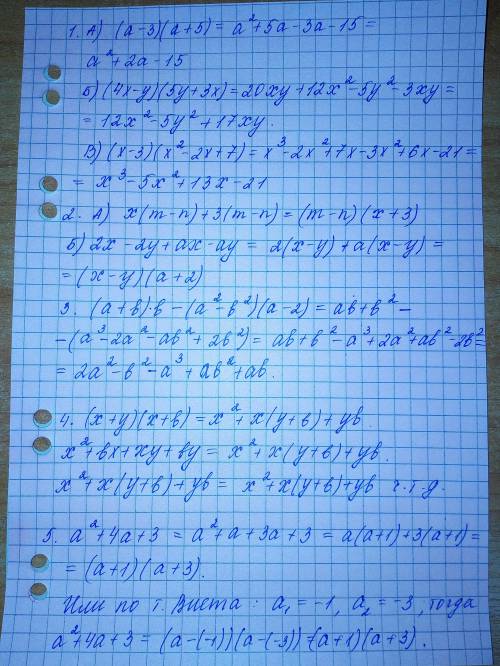 1. А) (а-3)(а+5) = а²+5а-3а-15 =
а²+2а-15
Б) (4x-y)(5y+3x) = 20xy+12x²-5y²-3xy =
= 12x²-5y²+17xy.
В) (x-3)(x²-2x+7) = x³-2x²+7x-3x²+6x-21 =
= x³-5x²+13x-21
2. А) x(m-n)+3(m-n) = (m-n)(x+3)
Б) 2x-2y+ax-ay = 2(x-y)+a(x-y) =
= (x-y)(a+2)
3. (a+в)·в-(a²-в²)(a-2) = aв+в²-
-(a³-2a²-aв²+2в²) = aв+в²-a³+2a²+aв²-2в²=
= 2a²-в²-a³+aв²+aв.
4. (x+y)(x+в) = x²+x(y+в)+yв.
x²+вx+xy+вy = x²+x(y+в)+yв.
x²+x(y+в)+yв = x²+x(y+в)+yв ч.т.д.
5. a²+4a+3 = a²+a+3a+3 = a(a+1)+3(a+1)=
= (a+1)(a+3).
Или по т. Виета: a₁ = -1, a₂ = -3, тогда
a²+4a+3 = (a-(-1))(a-(-3))=(a+1)(a+3).